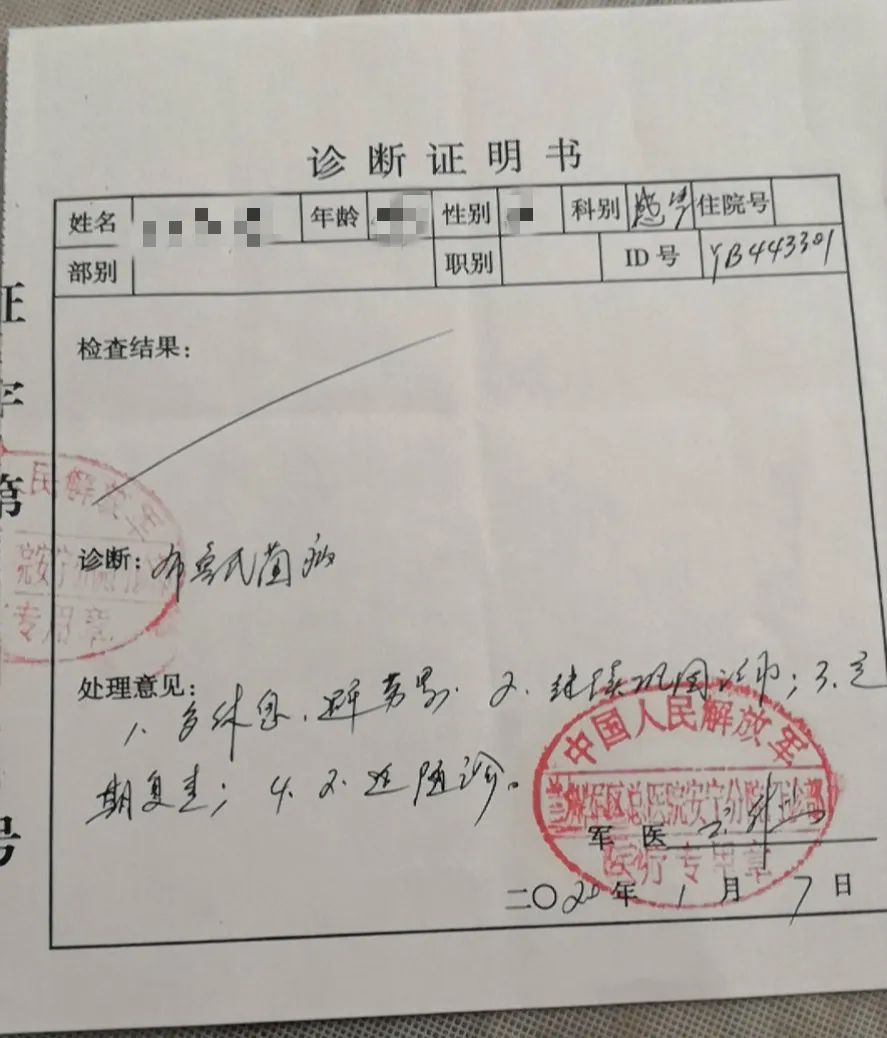 诊断证明书
姓名 年龄 性别 科别 感染 住院号
部别 职别 ID号 YB443301
检查结果：
诊断：布鲁氏菌病
处理意见：
1、多休息，避劳累、2、继续巩固治疗；3、定
期复查；4、不适随诊。
军医
二〇20年1月7日
中国人民解放军
总医院安宁分院门诊部
医疗专用章
民解放军
专用章
证
字
第
号